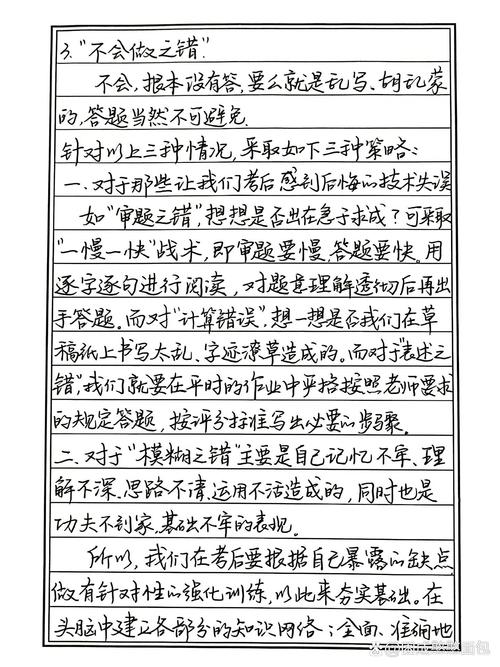 3."不会做之错"
不会,根本没有答,要么就是乱写、胡乱蒙
的,答题当然不可避免.
针对以上三种情况,采取如下三种策略:
一、对于那些让我们考后感到后悔的技术失误
如"审题之错",想想是否出在急于求成?可采取
"一慢一快"战术,即审题要慢,答题要快。用
逐字逐句进行阅读,对题意理解透彻后再出
手答题。而对"计算错误",想一想是否我们在草
稿纸上书写太乱、字迹潦草造成的。而对于"表述之
错",我们就要在平时的作业中严格按照老师要求
的规定答题,按评分标准写出必要的步骤。
二、对于"模糊之错"主要是自己记忆不牢、理
解不深、思路不清、运用不活造成的,同时也是
功夫不到家,基础不牢的表现。
所以,我们在考后要根据自己暴露的缺点
做有针对性的强化训练,以此来夯实基础。在
头脑中建立各部分的知识网络;全面、准确地